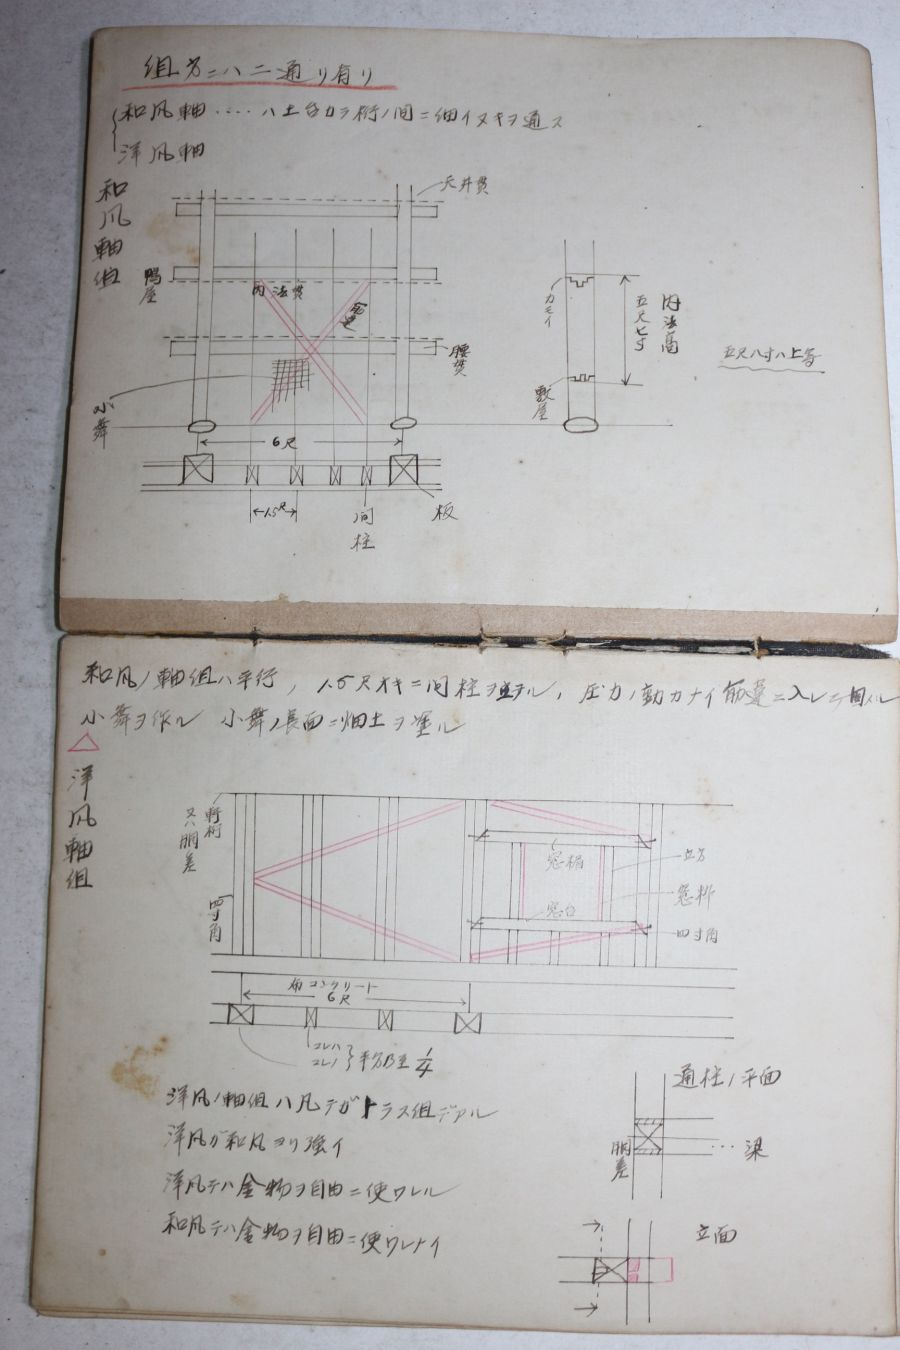 組方ニハ二通リ有リ
和風軸‥‥ハ土台カラ桁ノ間ニ細イヌキヲ通ス
洋風軸
和風軸組
天井貫
鴨居
内法貫
筋違
腰貫
小舞
6尺
1.5尺
间柱
板
カモイ
敷居
五尺七寸
内法高
五尺八寸ハ上等
和風ノ軸組ハ平行, 1.5尺オキニ间柱ヲ立テル, 圧力ノ動カナイ筋違ニ入レテ固メル
小舞ヲ作ル 小舞ノ表面ニ畑土ヲ塗ル
洋風軸組
軒桁
又ハ胴差
四寸角
窓楣
窓台
立方
四寸角
布コンクリート
6尺
コレハ
コレノ
洋風ノ軸組ハ凡テガトラス組デアル
洋風ガ和風ヨリ強イ
洋風テハ金物ヲ自由ニ使ワレル
和風テハ金物ヲ自由ニ使ワレナイ
通柱ノ平面
胴差
‥‥梁
立面